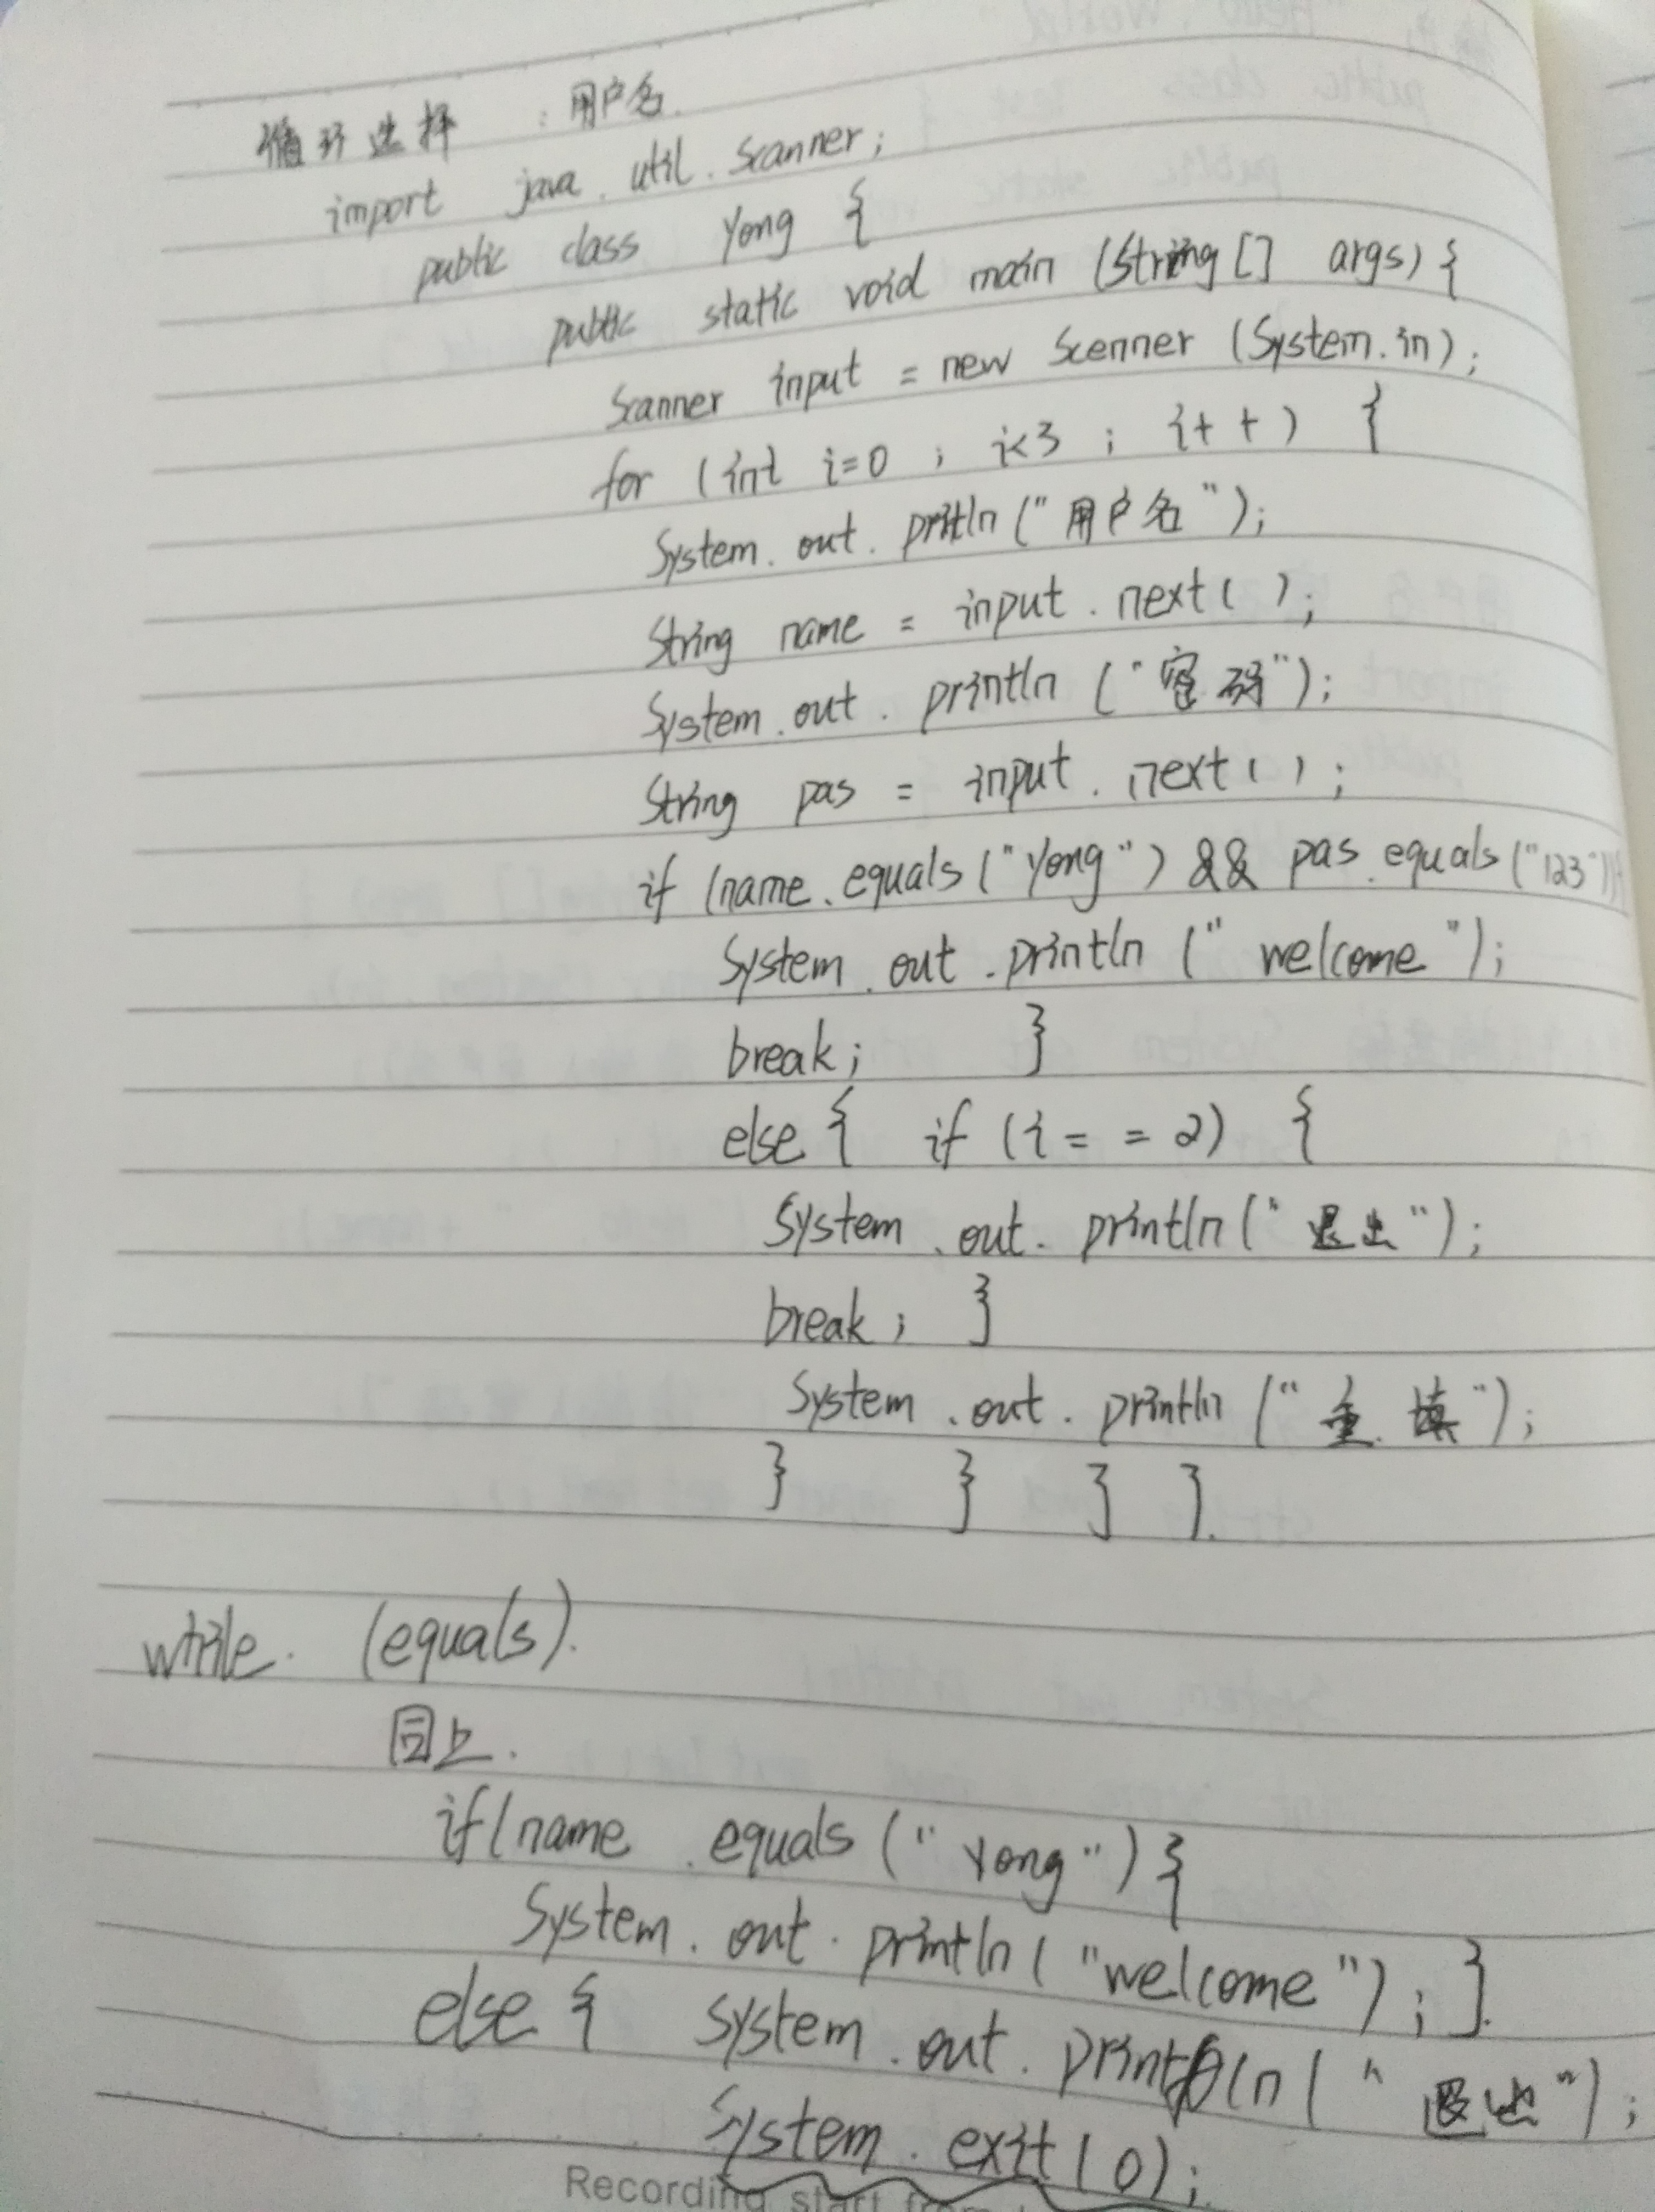 循环选择 : 用户名.
import java.util.Scanner;
public class Yong {
public static void main (String[] args) {
Scanner input = new Scenner (System.in);
for (int i=0 ; i<3 ; i++) {
System.out.pritln("用户名");
String name = input.next( );
System.out.println ("密码");
String pas = input.next( );
if (name.equals("Yong") && pas.equals("123")){
System.out.println (" welcome ");
break; }
else { if (i == 2) {
System.out.println("退出");
break; }
System.out.println ("重填");
} } } }.
while. (equals).
同上.
if(name.equals("Yong"){
System.out.println("welcome"); }.
else { System.out.println("退出");
System.exit(0);
Recording start from